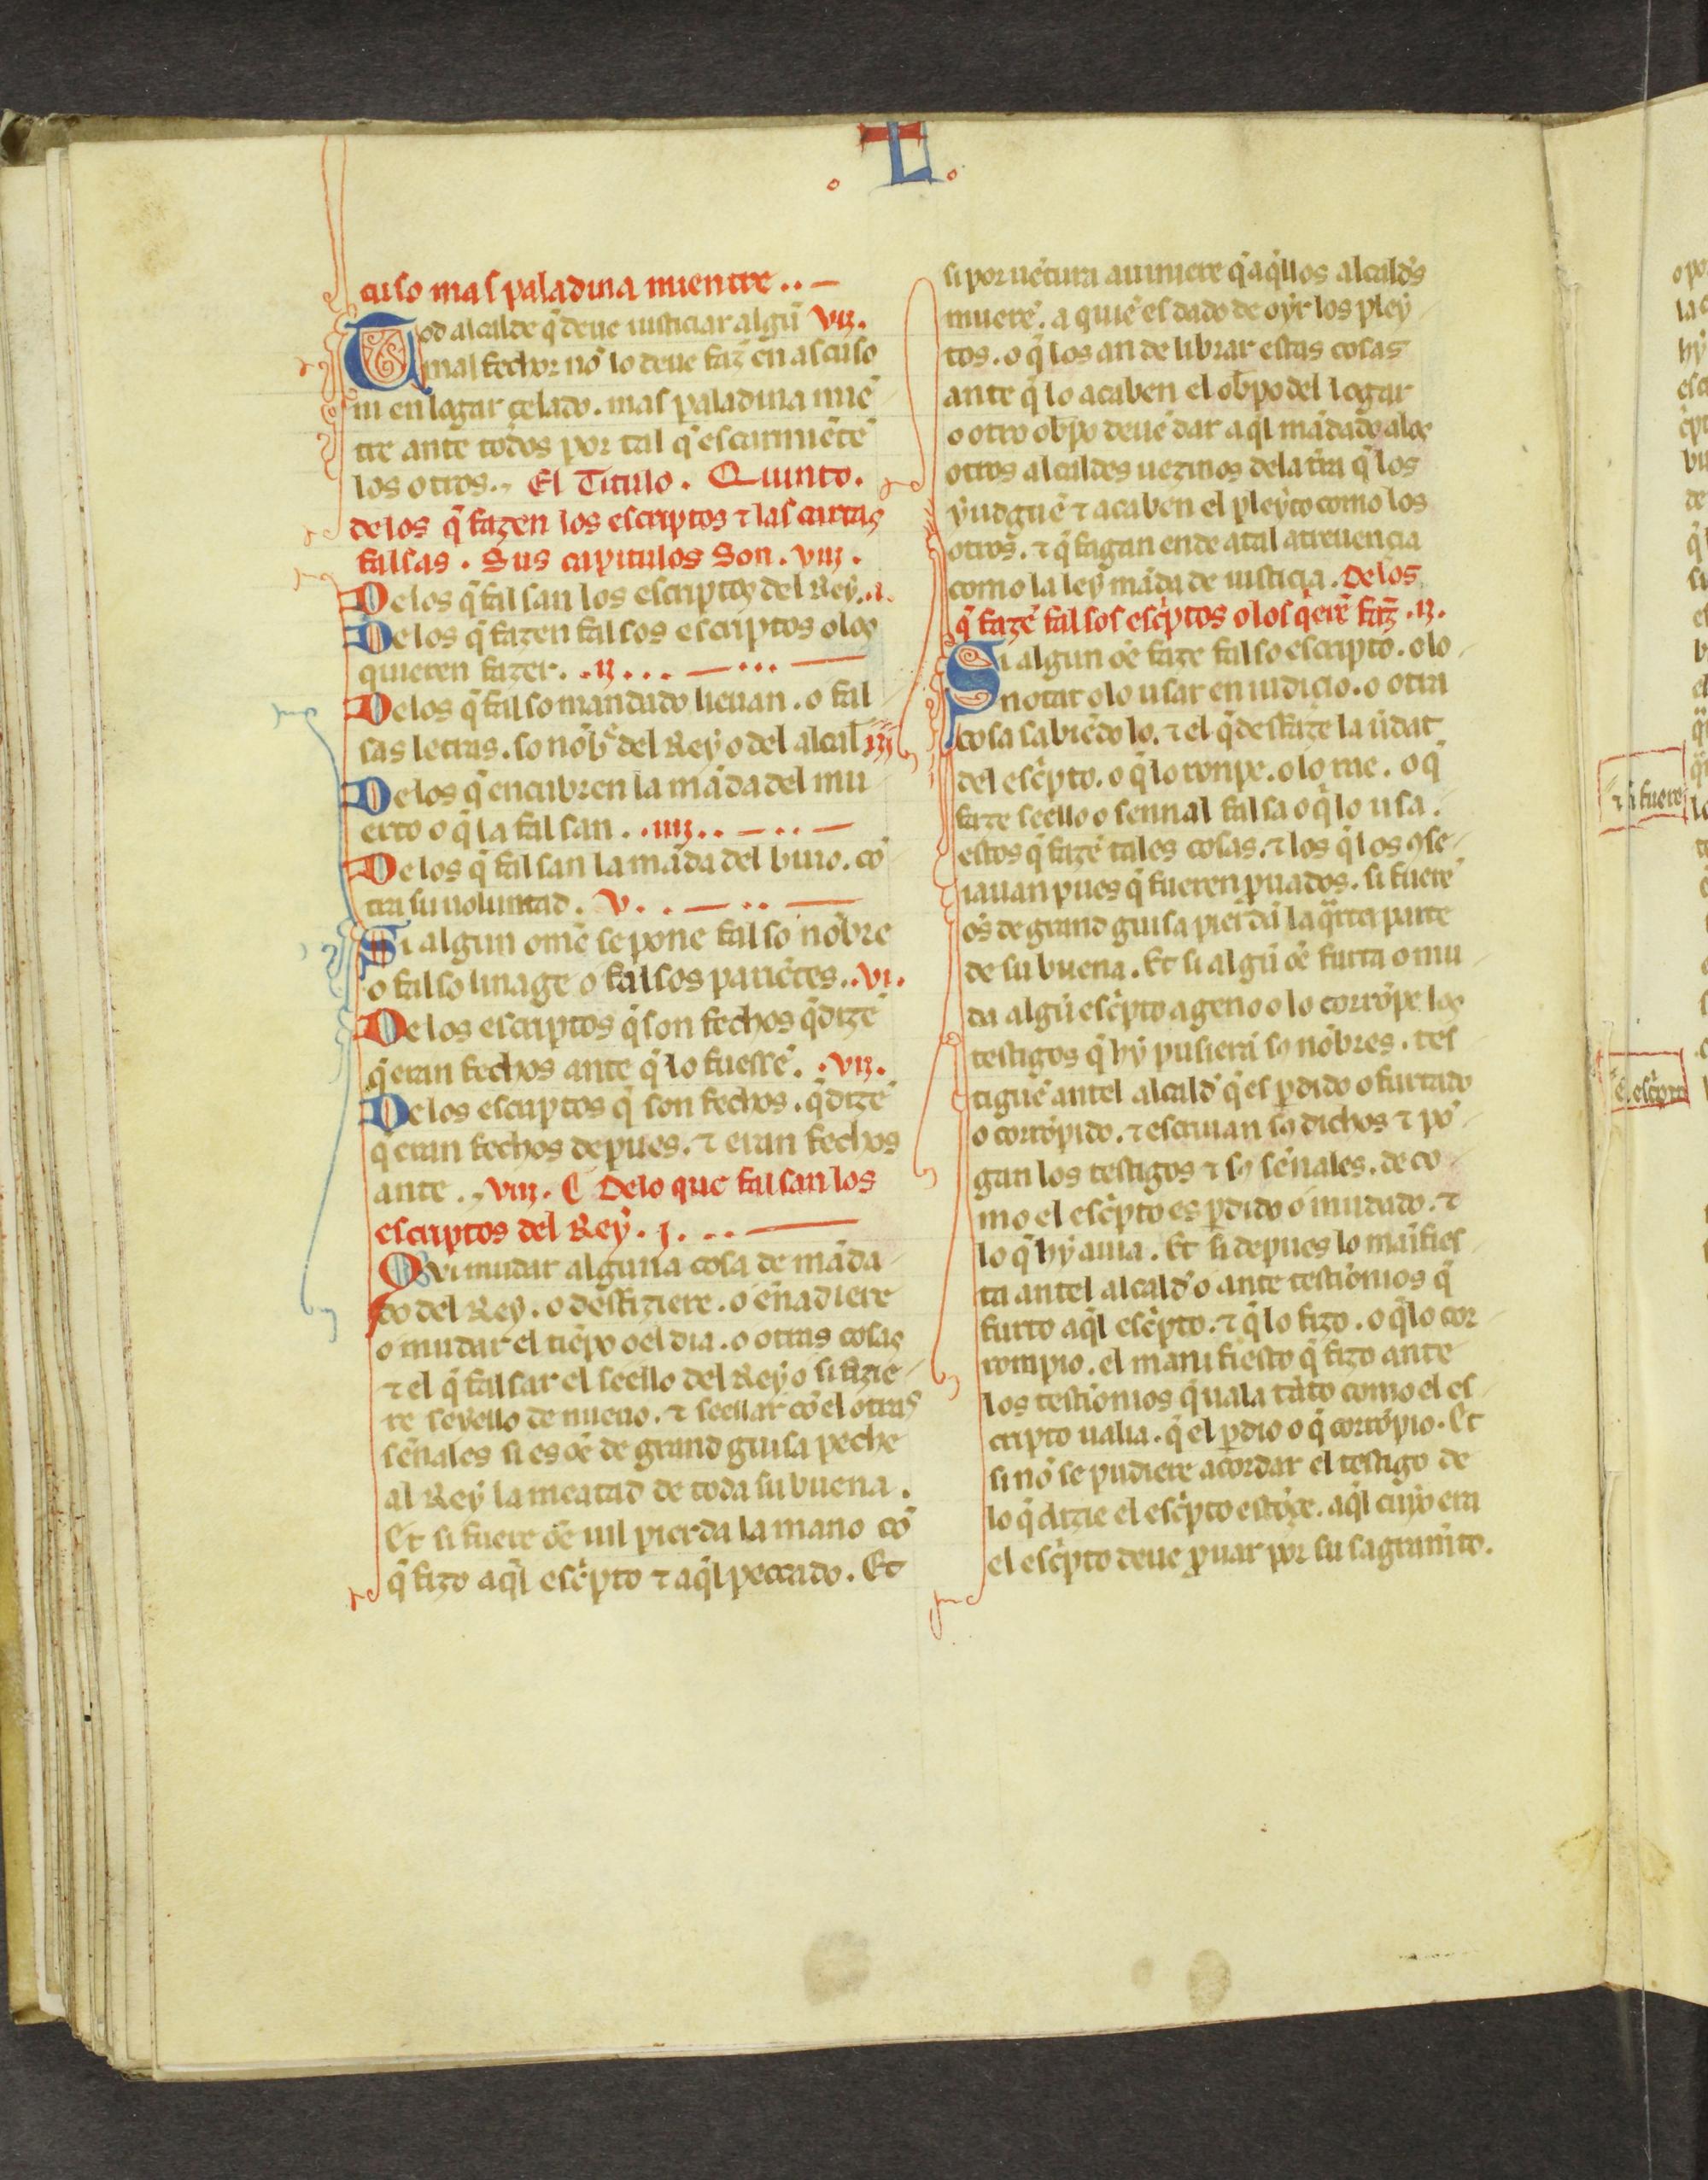 L
cuso mas paladina mientre..—
Tod alcalde q̃ deue iusticiar algũ vij.
mal fechor nõ lo deue faz̃ en ascuso
ni en logar çelado. mas paladina miẽ
tre ante todos por tal q̃ escarmiẽtẽ
los otros. El Titulo. Quinto.
delos q̃ fazen los escriptos ⁊ las cartas
falsas. Sus capitulos Son. viij.
Delos q̃ falsan los escriptos del Rey..i.
Delos q̃ fazen falsos escriptos o los
quieren fazer. .ij...—...—
Delos q̃ falso mandado lieuan. o fal
sas letras. so nõbr̃ del Rey o del alcal iij
Delos q̃ encubren la mãda del mu
erto o q̃ la falsan. .iiij..—..—
Delos q̃ falsan la mãda del biuo. cõ
tra su uoluntad. v. .—..—
Si algun omẽ se pone falso nõbre
o falso linage o falsos pariẽtes..vi.
Delos escriptos q̃ son fechos q̃ dizẽ
q̃ eran fechos ante q̃ lo fuessẽ. .vij.
Delos escriptos q̃ son fechos. q̃ dizẽ
q̃ eran fechos depues. ⁊ eran fechos
ante. ,viij. ¶ Delo que falsan los
escriptos del Rey. j. ...—
Qvi mudar alguna cosa de mãda
do del Rey. o desfiziere. o ẽnadiere
o mudar el tiẽpo o el dia. o otras cosas
⁊ el q̃ falsar el seello del Rey o si fizie
re seyello de nueuo. ⁊ seellar cõ el otras
sẽnales si es oẽ de grand guisa peche
al Rey la meatad de toda su buena.
Et si fuere oẽ uil pierda la mano cõ
q̃ fizo aq̃l escp̃to ⁊ aq̃l peccado. Et
si por uẽtura auiniere q̃ aq̃llos alcaldes
muerẽ. a quiẽ es dado de oyr los pley
tos. o q̃ los an de librar estas cosas
ante q̃ lo acaben el obpo del logar
o otro obpo deue dar a aq̃l mãdado alos
otros alcaldes uezinos dela tr̃ra q̃ los
yudguẽ ⁊ acaben el pleyto como los
otros. ⁊ q̃ fagan ende atal atreuencia
como la ley mãda de iusticia. Delos
q̃ fazẽ falsos escp̃tos o los q̃erẽ faz̃ .ij.
Si algun oẽ faze falso escripto. o lo
notar o lo usar en iudicio. o otra
cosa sabiẽdo lo. ⁊ el q̃ desfaze la ũdat
del escp̃to. o q̃ lo ronpe. o lo rae. o q̃
faze seello o sennal falsa o q̃ lo usa.
estos q̃ fazẽ tales cosas. ⁊ los q̃ los ꝯse
iauan pues q̃ fueren ꝓuados. si fuerẽ
oẽs de grand guisa pierdã la q̃rta parte
de su buena. Et si algũ oẽ furta o mu
da algũ escp̃to ageno o lo corrõpe los
testigos q̃ hy pusierã so nõbres. tes
tiguẽ antel alcald̃ q̃ es ꝑdido o furtado
o corrõpido. ⁊ escriuan so dichos ⁊ põ
gan los testigos ⁊ so sẽnales. de co
mo el escp̃to es ꝑdido o mudado. ⁊
lo q̃ hy auia. Et si depues lo maĩfies
ta antel alcald̃ o ante testĩonios q̃
furto aq̃l escp̃to. ⁊ q̃ lo fizo. o q̃ lo cor
rompio. el manifiesto q̃ fizo ante
los testĩonios q̃ uala tãto como el es
cripto ualia. q̃ el ꝑdio o q̃ corrõpio. Et
si nõ se pudiere acordar el testigo de
lo q̃ dizie el escp̃to estõçe. aq̃l cuyo era
el escp̃to deue ꝓuar por su sagramẽto.
⁊ si fuere
el escp̃to